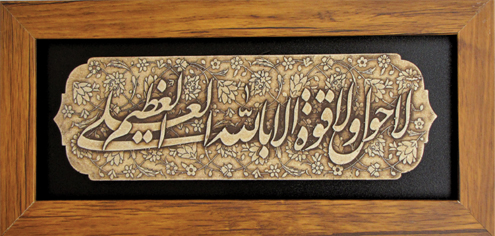 لا حول ولا قوة الا بالله العلی العظیم